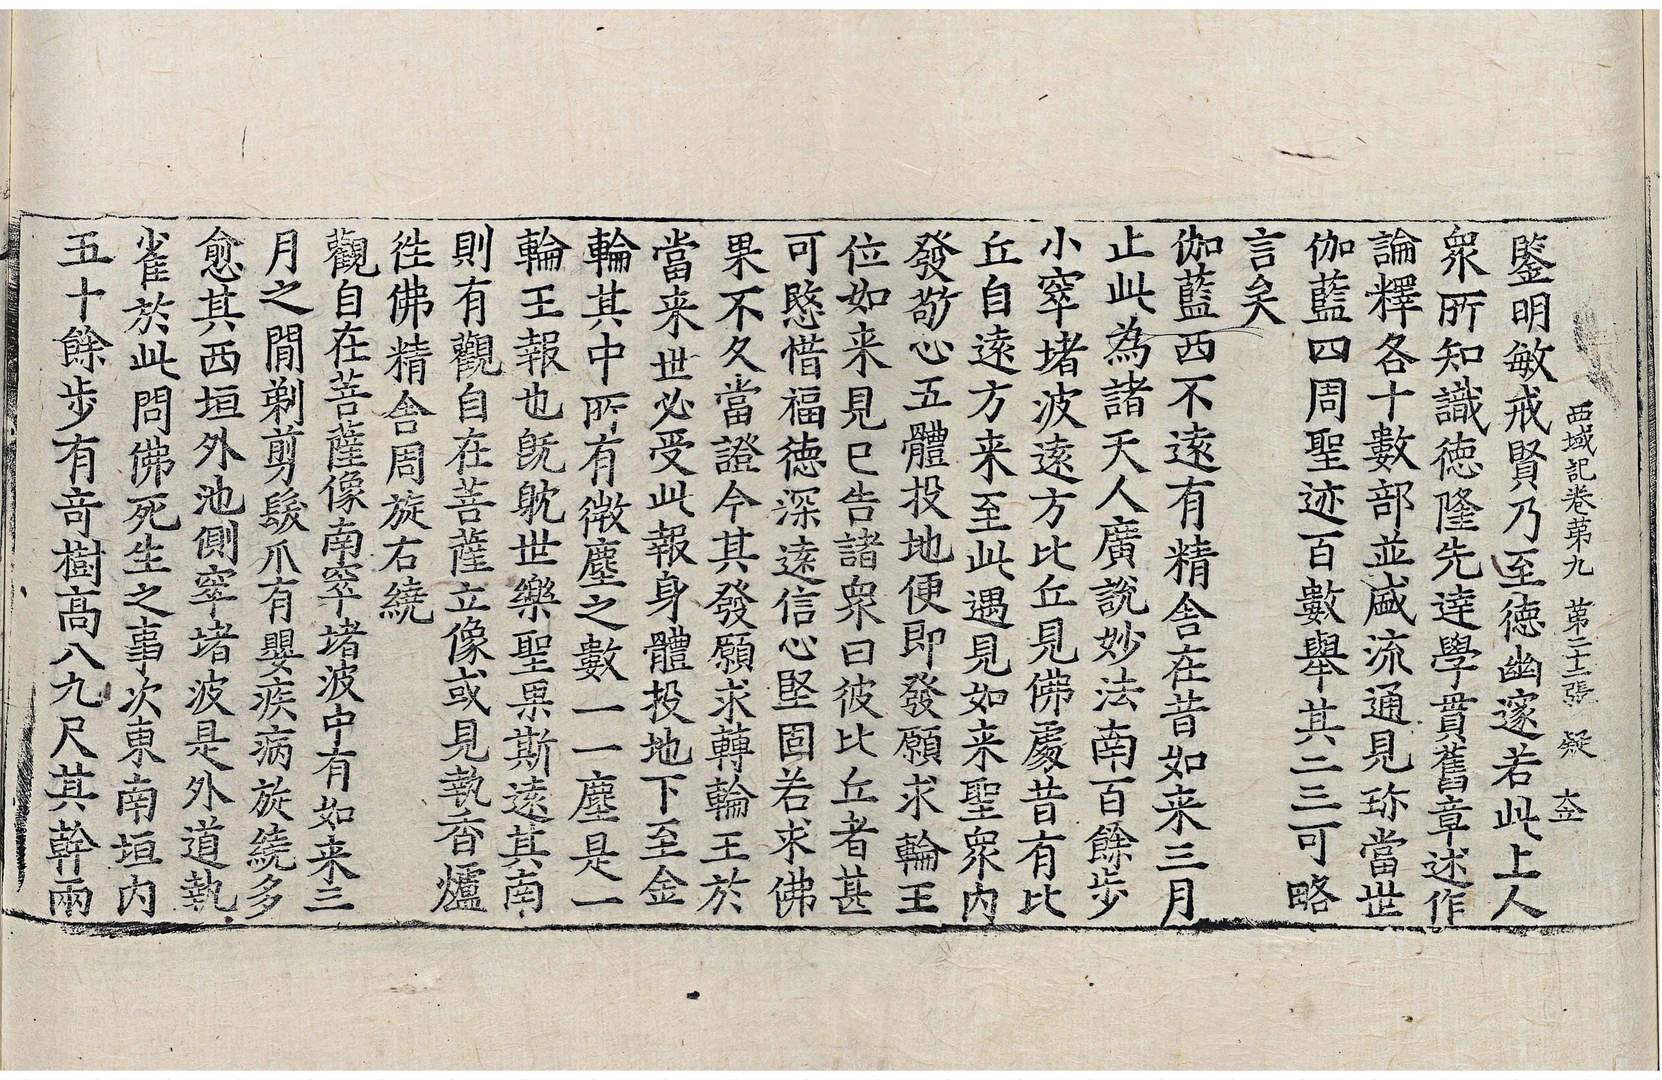 西域記卷苐九 第二十二張 疑
鑒明敏戒賢乃至徳幽邃若此上人
衆所知識徳隆先達學貫舊章述作
論釋各十數部並盛流通見珎當世
伽藍四周聖迹百數舉其二三可略
言矣
伽藍西不遠有精舍在昔如来三月
止此為諸天人廣說妙法南百餘步
小窣堵波遠方比丘見佛處昔有比
丘自遠方来至此遇見如来聖衆內
發敬心五體投地便即發願求輪王
位如来見已告諸衆曰彼比丘者甚
可愍惜福徳深遠信心堅固若求佛
果不久當證今其發願求轉輪王於
當来世必受此報身體投地下至金
輪其中所有微塵之數一一塵是一
輪王報也旣躭世樂聖果斯遠其南
則有觀自在菩薩立像或見執香爐
往佛精舍周旋右繞
觀自在菩薩像南窣堵波中有如来三
月之閒剃剪髮爪有嬰疾病旋繞多
愈其西垣外池側窣堵波是外道執
雀於此問佛死生之事次東南垣內
五十餘步有竒樹高八九尺其幹兩